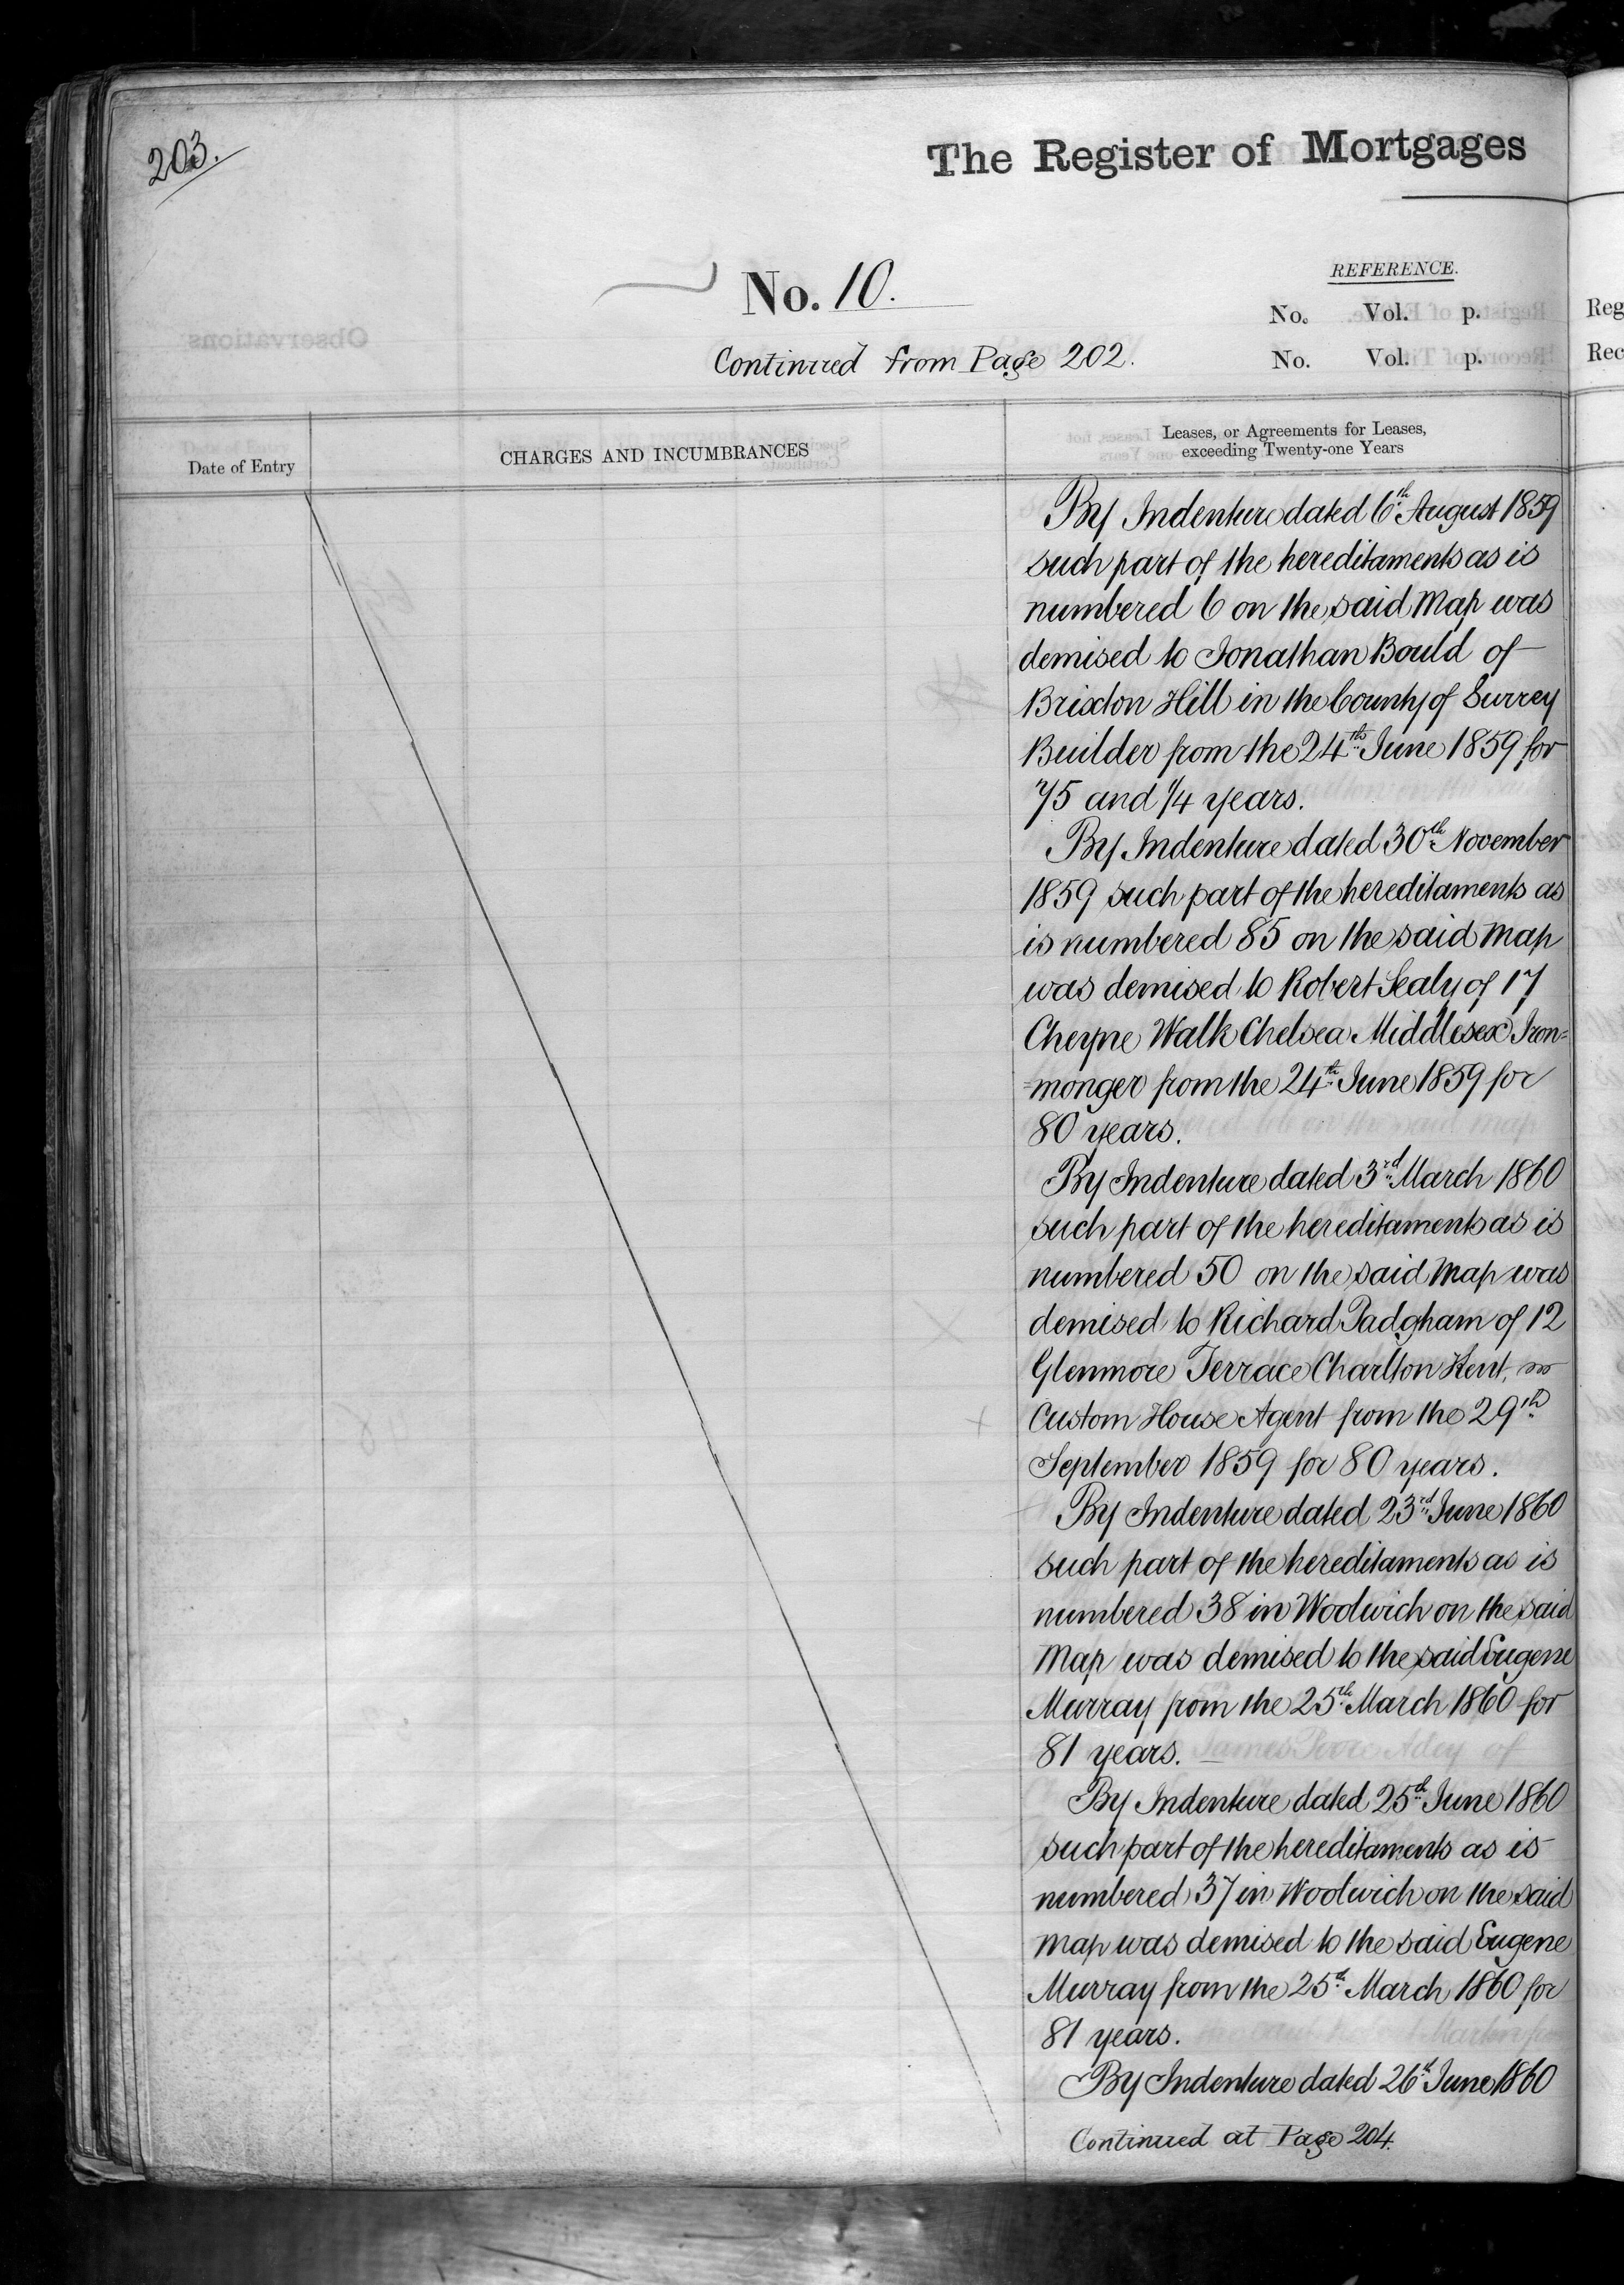 203.
The Register of Mortgages
No. 10.
REFERENCE.
No. Vol. p.
No. Vol. p.
Continued from Page 202.
Date of Entry
CHARGES AND INCUMBRANCES
Leases, or Agreements for Leases,
exceeding Twenty-one Years
By Indenture dated 6th August 1859
such part of the hereditaments as is
numbered 6 on the said Map was
demised to Jonathan Bould of
Brixton Hill in the County of Surrey
Builder from the 24th June 1859 for
75 and 1/4 years.
By Indenture dated 30th November
1859 such part of the hereditaments as
is numbered 85 on the said Map
was demised to Robert Sealy of 17
Cheyne Walk Chelsea Middlesex Iron=
=monger from the 24th June 1859 for
80 years.
By Indenture dated 3rd March 1860
such part of the hereditaments as is
numbered 50 on the said Map was
demised to Richard Padgham of 12
Glenmore Terrace Charlton Kent,
Custom House Agent from the 29th
September 1859 for 80 years.
By Indenture dated 23rd June 1860
such part of the hereditaments as is
numbered 38 in Woolwich on the said
Map was demised to the said Eugene
Murray from the 25th March 1860 for
81 years.
By Indenture dated 25th June 1860
such part of the hereditaments as is
numbered 37 in Woolwich on the said
Map was demised to the said Eugene
Murray from the 25th March 1860 for
81 years.
By Indenture dated 26th June 1860
Continued at Page 204.
Reg
Rec